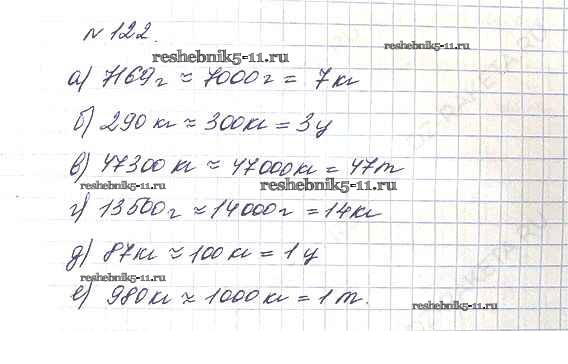 № 122.
reshebnik5-11.ru
reshebnik5-11.ru
а) 7169 г ≈ 7000 г = 7 кг
б) 290 кг ≈ 300 кг = 3 ц
в) 47300 кг ≈ 47000 кг = 47 т
reshebnik5-11.ru
reshebnik5-11.ru
г) 13500 г ≈ 14000 г = 14 кг
д) 87 кг ≈ 100 кг = 1 ц
reshebnik5-11.ru
е) 980 кг ≈ 1000 кг = 1 т.
reshebnik5-11.ru